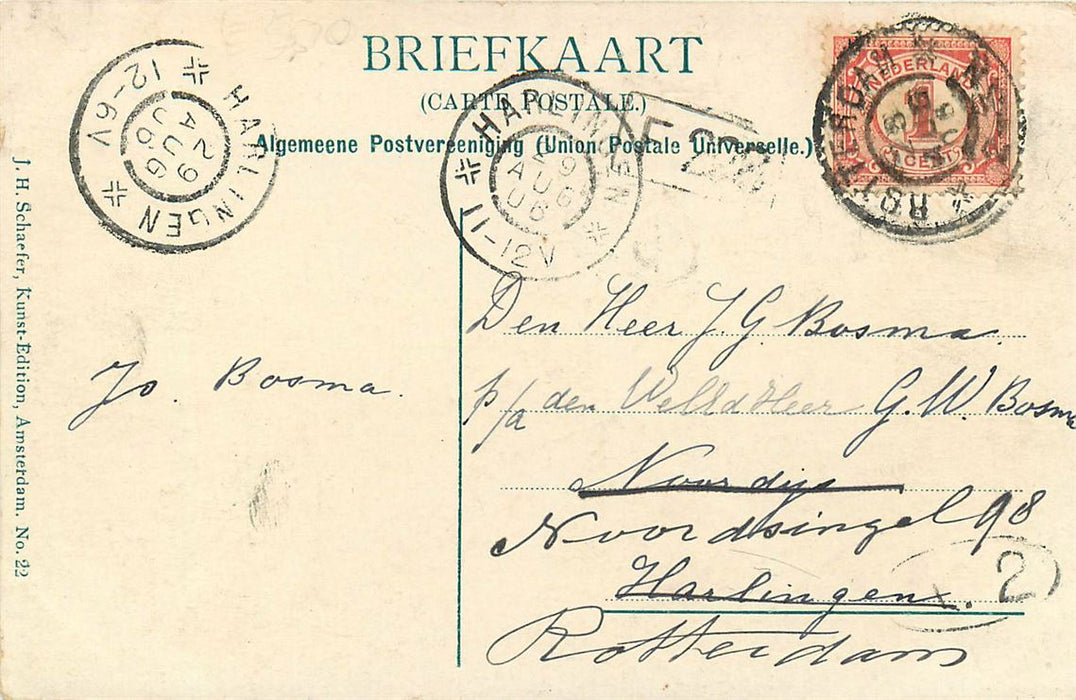 BRIEFKAART
(CARTE POSTALE.)
Algemeene Postvereeniging (Union Postale Universelle.)
HARLINGEN
12-6V
29
AUG
06
HARLINGEN
11-12V
29
AUG
06
NEDERLAND
1
CENT
ROTTERDAM
Den Heer J. G. Bosma.
p/a den WelEd Heer G. W. Bosma
Noordijs
Noordsingel 98
Harlingen
Rotterdam
2
Jo. Bosma.
J. H. Schaefer, Kunst-Edition, Amsterdam. No. 22